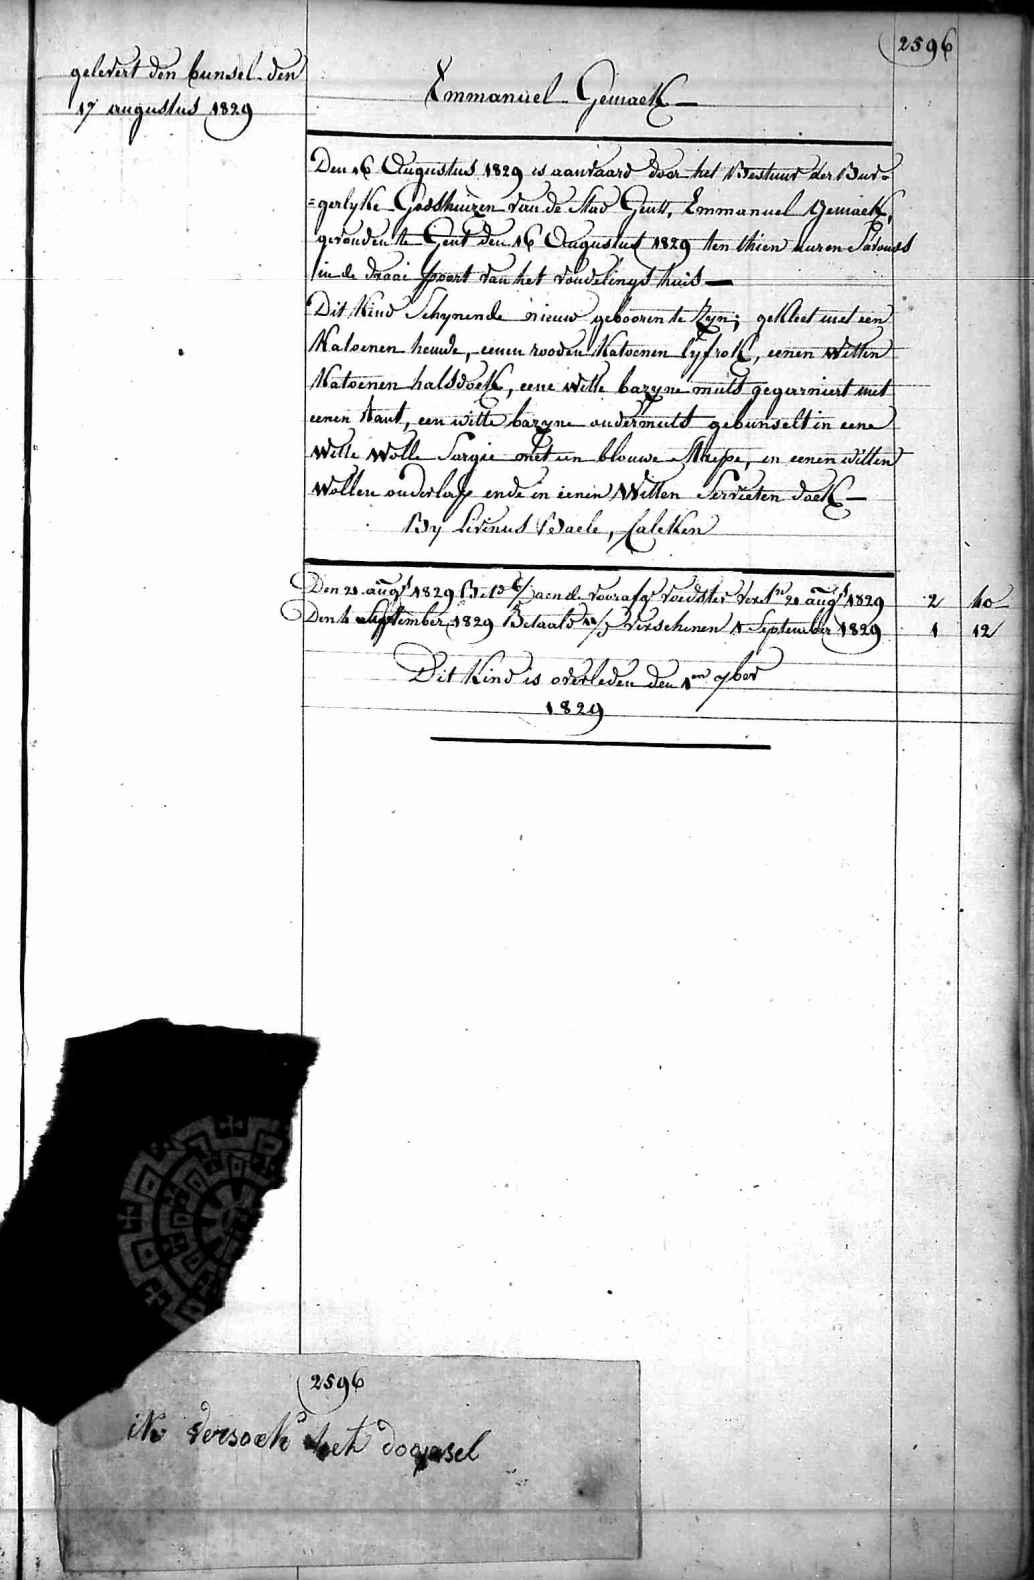 2596
gelevert den bunsel den
17 augustus 1829
Emmanuel Gemaek
Den 16 Augustus 1829 is aanvaard door het Bestuur der Bur=
=gerlyke Godshuizen van de Stad Gent, Emmanuel Gemaek,
gevonden te Gent den 16 Augustus 1829 ten thien uuren Savonds
in de draai Poort van het vondelingshuis
Dit Kind Schynende nieuw gebooren te Zyn; gekleet met een
Katoenen hemde, eenen rooden Katoenen Lyfrok, eenen Witten
Katoenen halsdoek, eene Witte bazyne muts gegarniert met
eenen Kant, een witte bazyne ondermuts gebunselt in eene
Witte Wolle Sargie met een blouwe Strepe, en eenen witten
Wollen onderlap ende in eenen Witten Servieten doek
By Livinus Baele, Calcken
Den 21 augt 1829 Bet aen de voorafge voedster versn 21 augt 1829 2 40
Den 4 September 1829 Betaald verschenen 1 September 1829 1 12
Dit Kind is overleden den 1en 7ber
1829
2596
ik versoek het doopsel